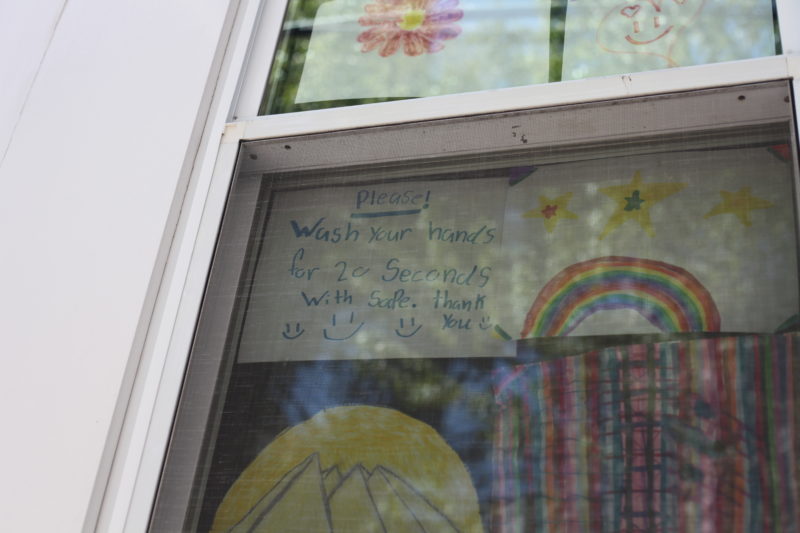 Please!
Wash your hands
for 20 Seconds
With Sape. thank
You